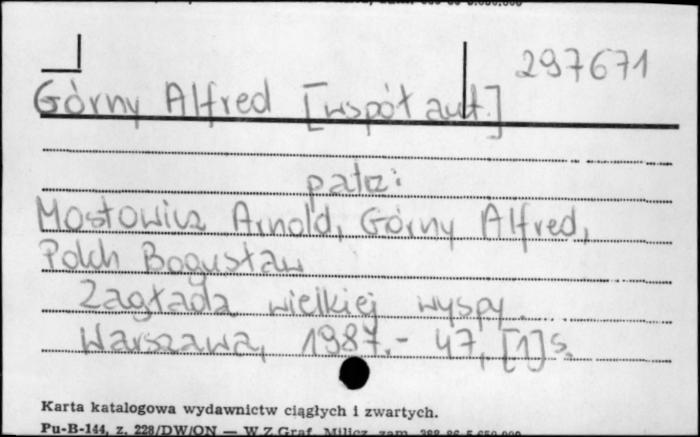 297671
Górny Alfred [współaut.]
patrz:
Mostowicz Arnold, Górny Alfred,
Polch Bogusław
Zagłada wielkiej wyspy.
Warszawa, 1987.- 47, [1] s.
Karta katalogowa wydawnictw ciągłych i zwartych.
Pu-B-144, z. 228/DW/ON — W.Z.Graf. Milicz, zam.